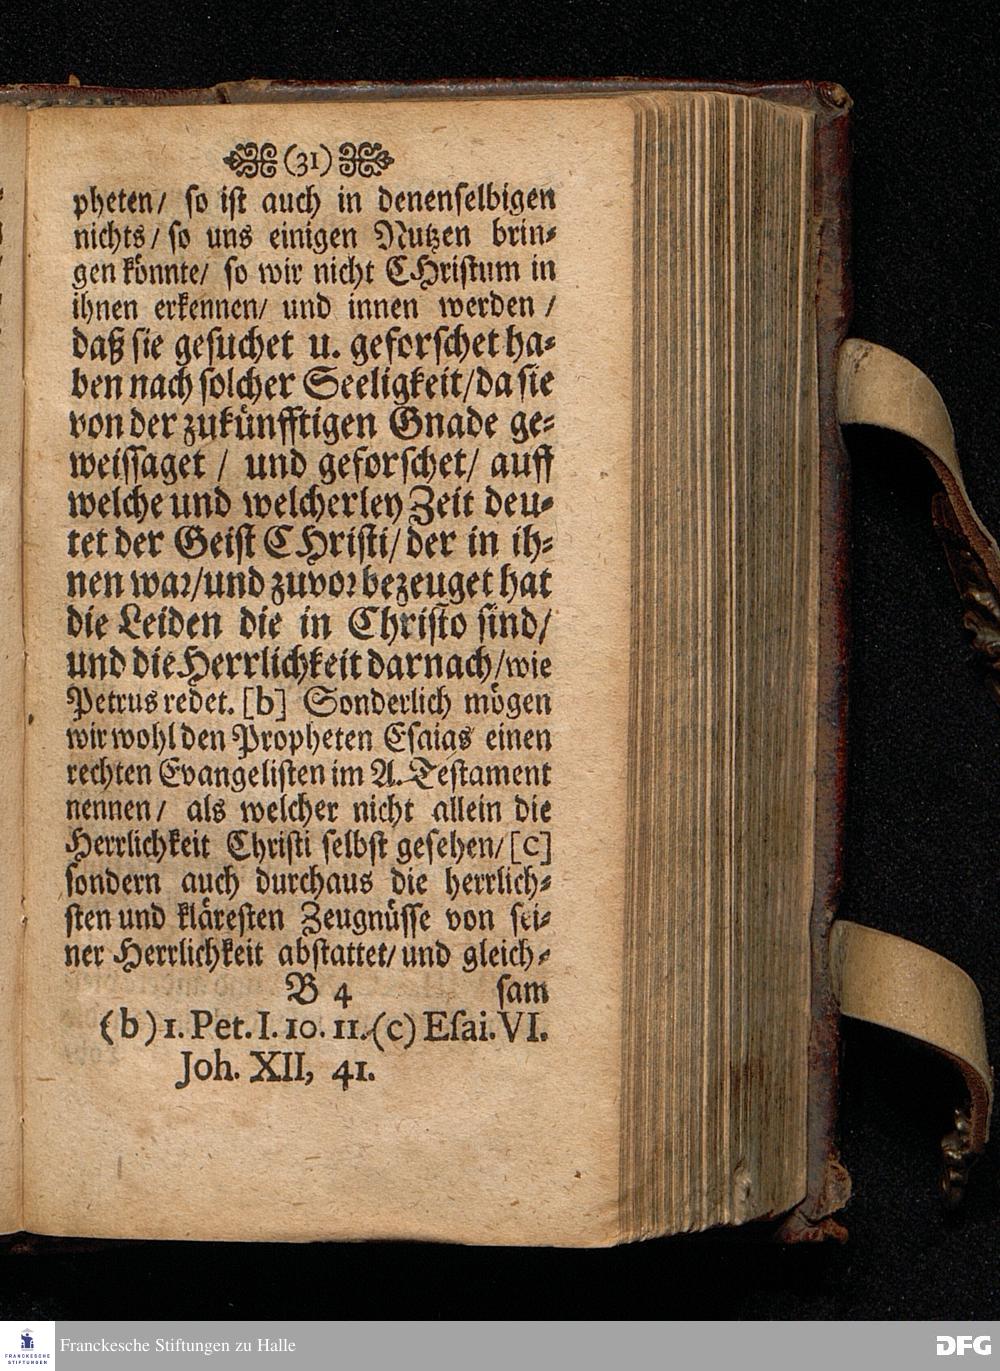 (31)
pheten/ so ist auch in denenselbigen
nichts/ so uns einigen Nutzen brin-
gen könnte/ so wir nicht CHristum in
ihnen erkennen/ und innen werden /
daß sie gesuchet u. geforschet ha-
ben nach solcher Seeligkeit/ da sie
von der zukünfftigen Gnade ge-
weissaget / und geforschet/ auff
welche und welcherley Zeit deu-
tet der Geist CHristi/ der in ih-
nen war/ und zuvor bezeuget hat
die Leiden die in Christo sind/
und die Herrlichkeit darnach/ wie
Petrus redet. [b] Sonderlich mögen
wir wohl den Propheten Esaias einen
rechten Evangelisten im A. Testament
nennen/ als welcher nicht allein die
Herrlichkeit Christi selbst gesehen/ [c]
sondern auch durchaus die herrlich-
sten und kläresten Zeugnüsse von sei-
ner Herrlichkeit abstattet/ und gleich-
B 4 sam
(b) 1. Pet. I. 10. 11. (c) Esai. VI.
Joh. XII, 41.
FRANCKESCHE STIFTUNGEN
Franckesche Stiftungen zu Halle
DFG